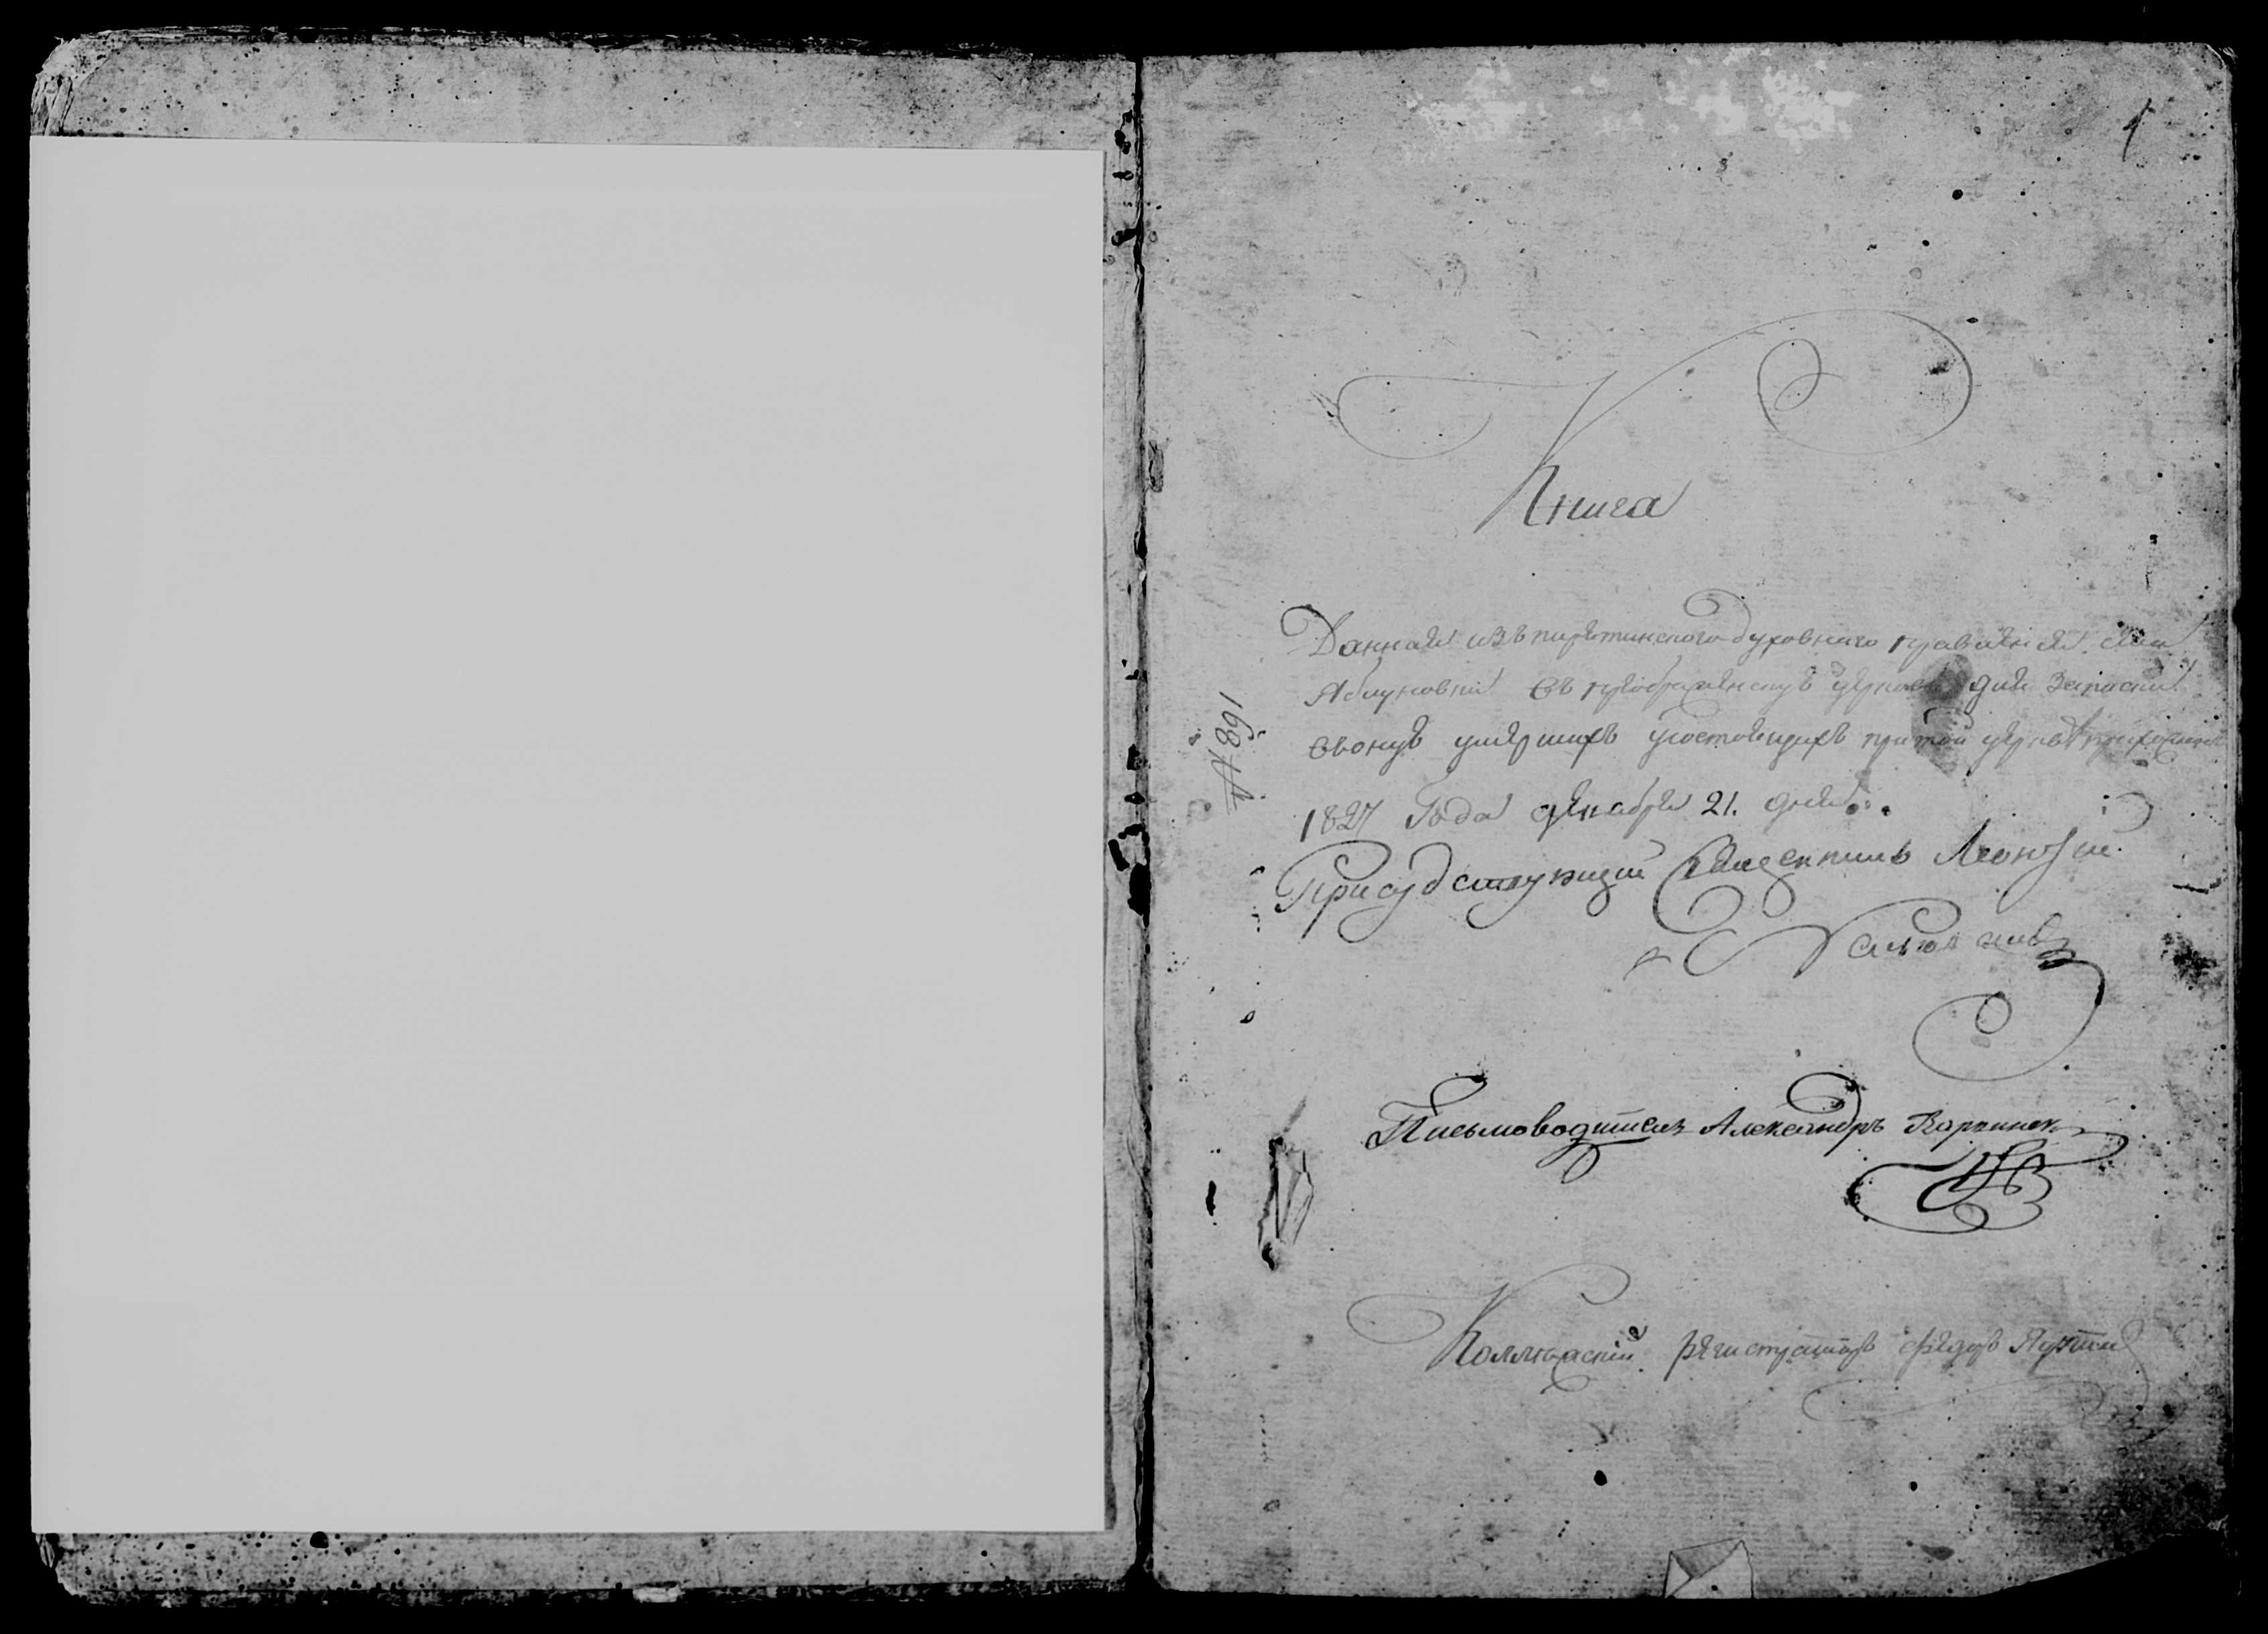 1
Книга
Данная изъ пирятинского духовного правления села
Яблуновки въ преображенску церковь для Записки
вьонув умершихъ у состоящихъ при той церкве прихожан
1827 Года декабря 21. дня
Присудствующий Священникъ Леонтий
Писмоводитель Александръ Карпинск
Коллежский регистраторъ Федоръ
168